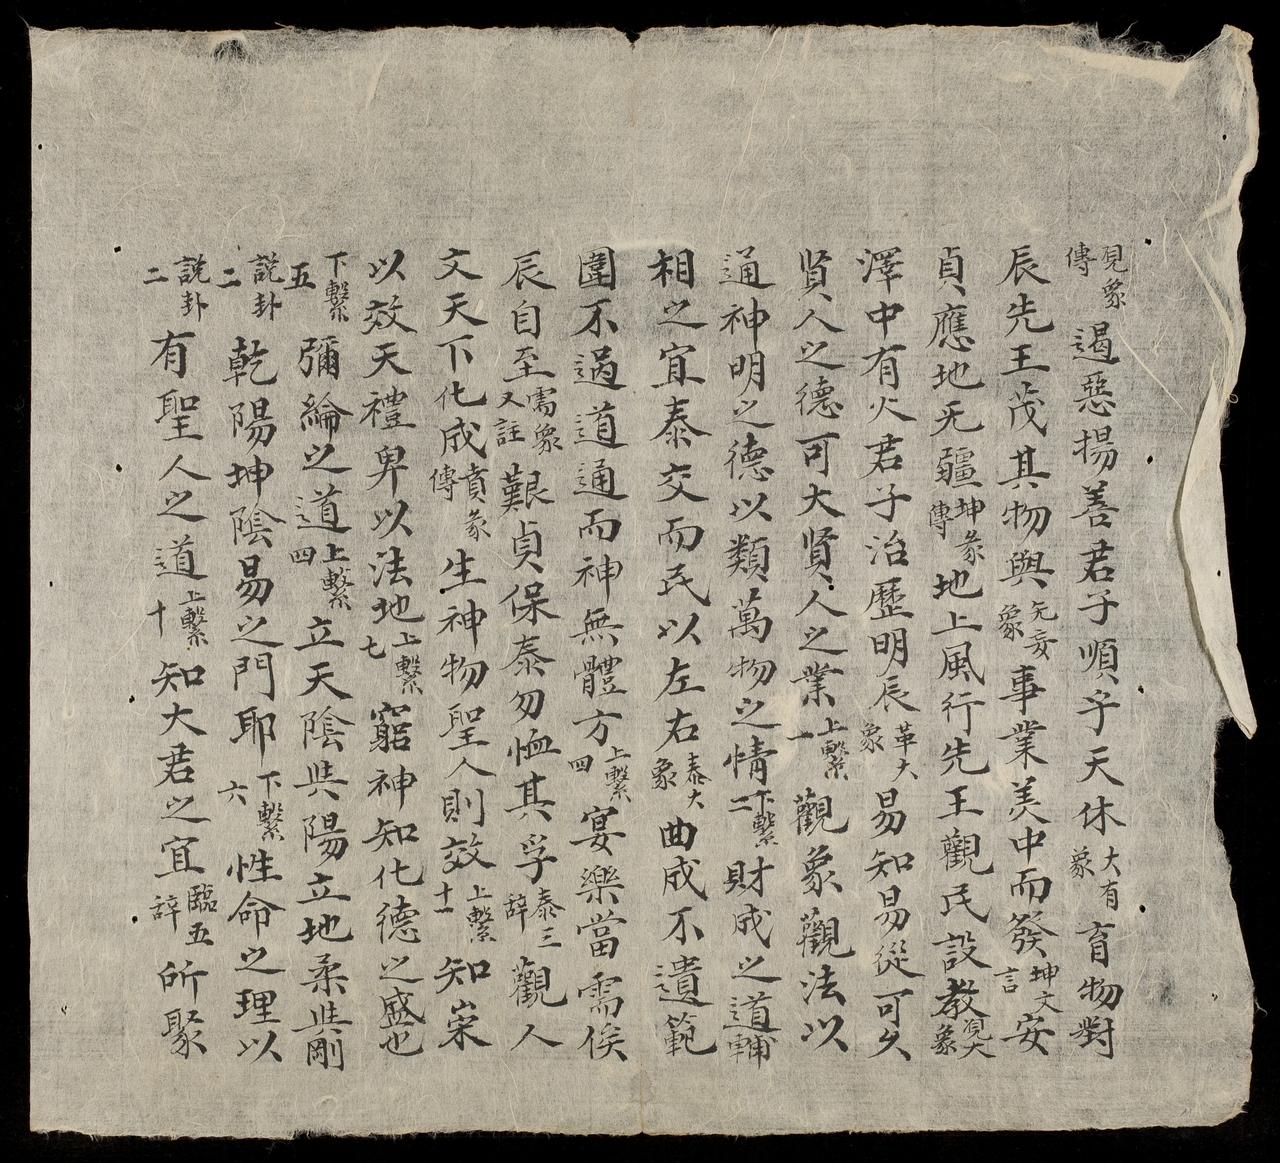 覍象傳遏惡揚善君子順乎天休大有象育物對
辰先王茂其物與无妄象事業美中而發坤文言安
貞應地无疆坤彖傳地上風行先王觀民設教觀大象
澤中有火君子治歷明辰革大象易知易從可久
賢人之德可大賢人之業上繫一觀象觀法以
通神明之德以類萬物之情下繫二財成之道輔
相之宜泰交而民以左右泰大象曲成不遺範
圍不過道通而神無體方上繫四宴樂當需俟
辰自至需象又註艱貞保泰勿恤其孚泰三辞觀人
文天下化成賁彖傳生神物聖人則效上繫十一知崇
以效天禮卑以法地上繫七窮神知化德之盛也
下繫五彌綸之道上繫四立天陰與陽立地柔與剛
說卦二乾陽坤陰易之門耶下繫六性命之理以
說卦二有聖人之道上繫十知大君之宜臨五辞所聚